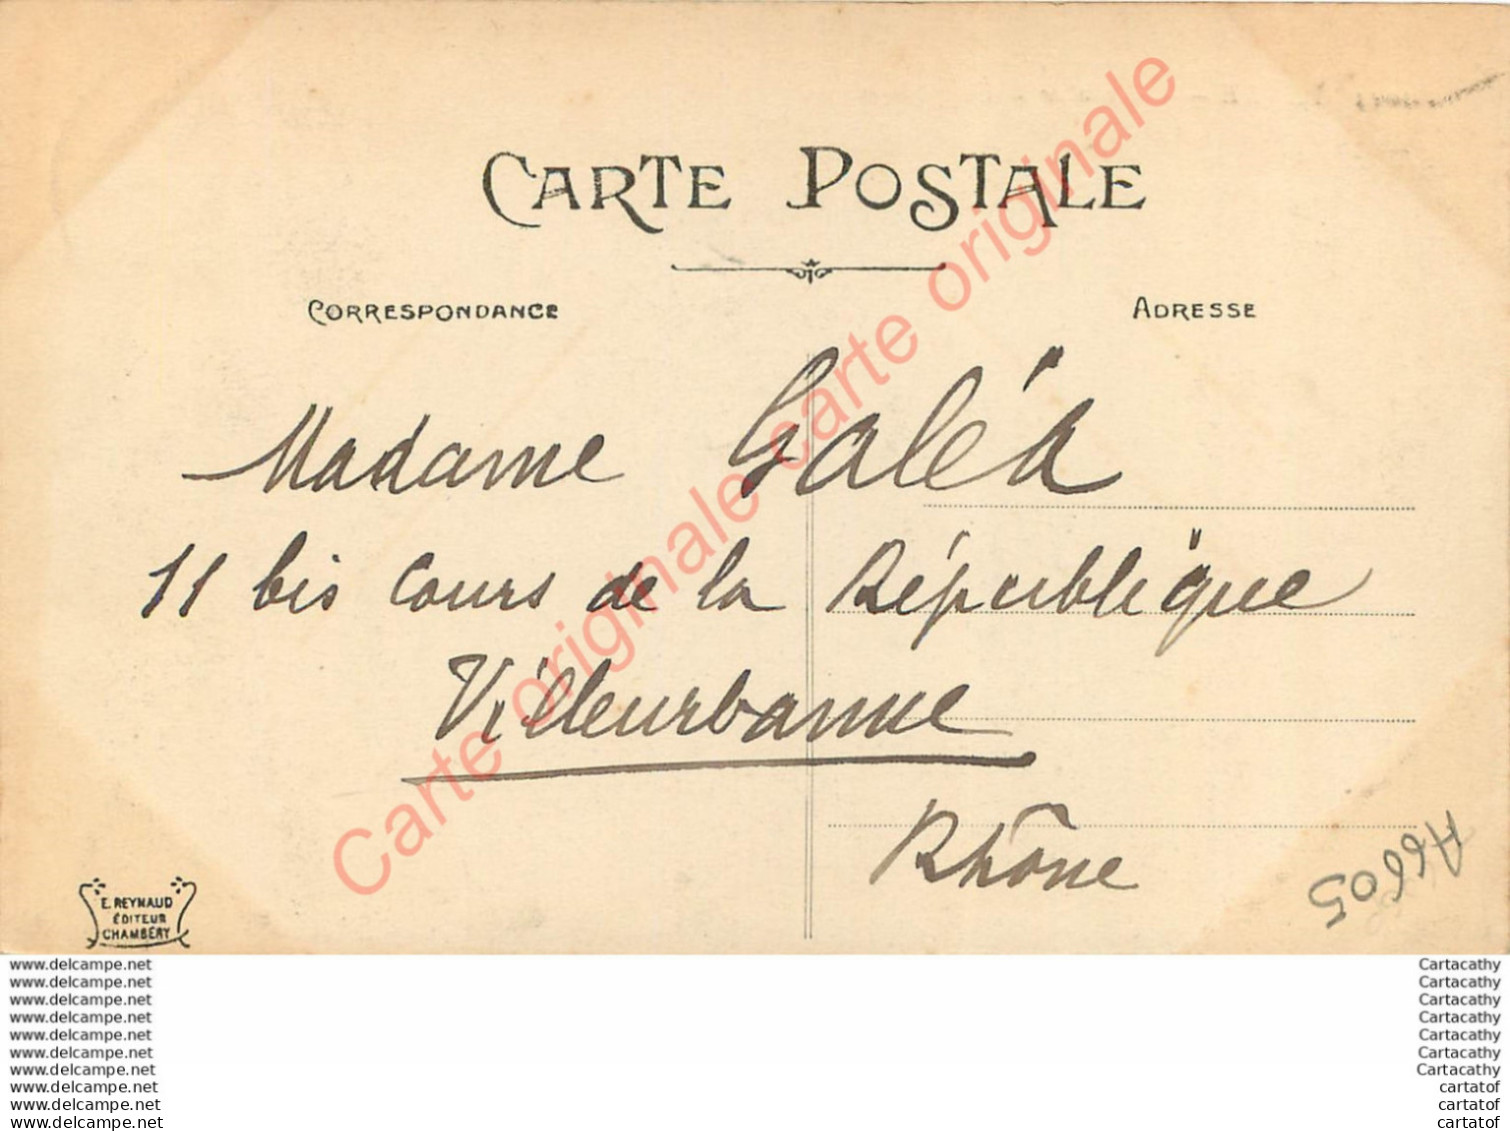 CARTE POSTALE
CORRESPONDANCE
ADRESSE
Madame Galéa
11 bis Cours de la République
Villeurbanne
Rhône
E. REYNAUD
ÉDITEUR
CHAMBÉRY
A6605
Carte originale carte originale
www.delcampe.net
www.delcampe.net
www.delcampe.net
www.delcampe.net
www.delcampe.net
www.delcampe.net
www.delcampe.net
www.delcampe.net
www.delcampe.net
www.delcampe.net
Cartacathy
Cartacathy
Cartacathy
Cartacathy
Cartacathy
Cartacathy
Cartacathy
cartatof
cartatof
cartatof